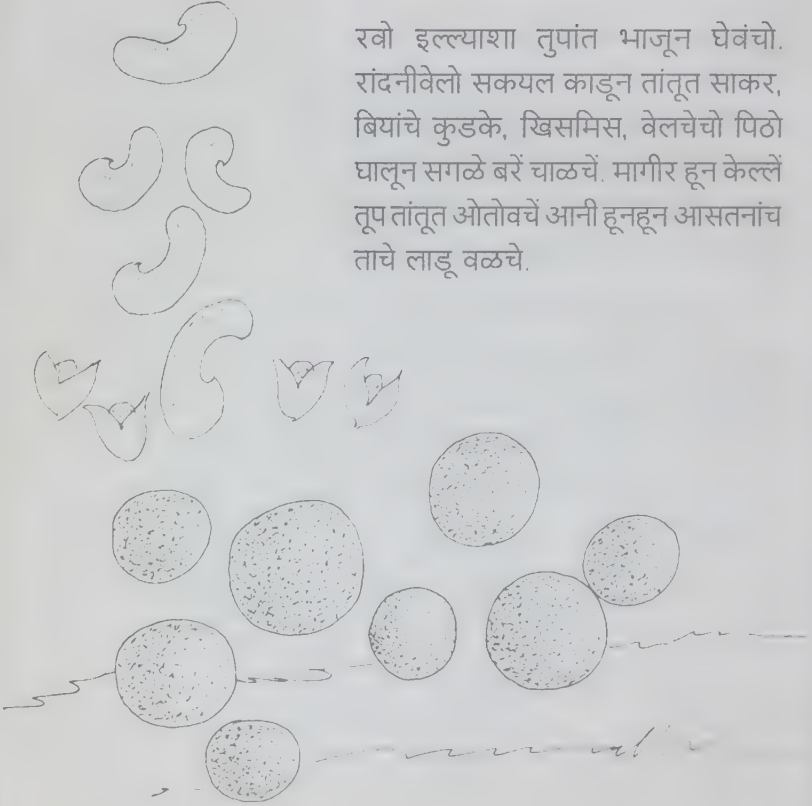 रवो इल्ल्याशा तुपांत भाजून घेवंचो.
रांदनीवेलो सकयल काडून तांतूत साकर,
बियांचे कुडके, खिसमिस, वेलचेचो पिठो
घालून सगळे बरें चाळचें. मागीर हून केल्लें
तूप तांतूत ओतोवचें आनी हूनहून आसतनांच
ताचे लाडू वळचे.